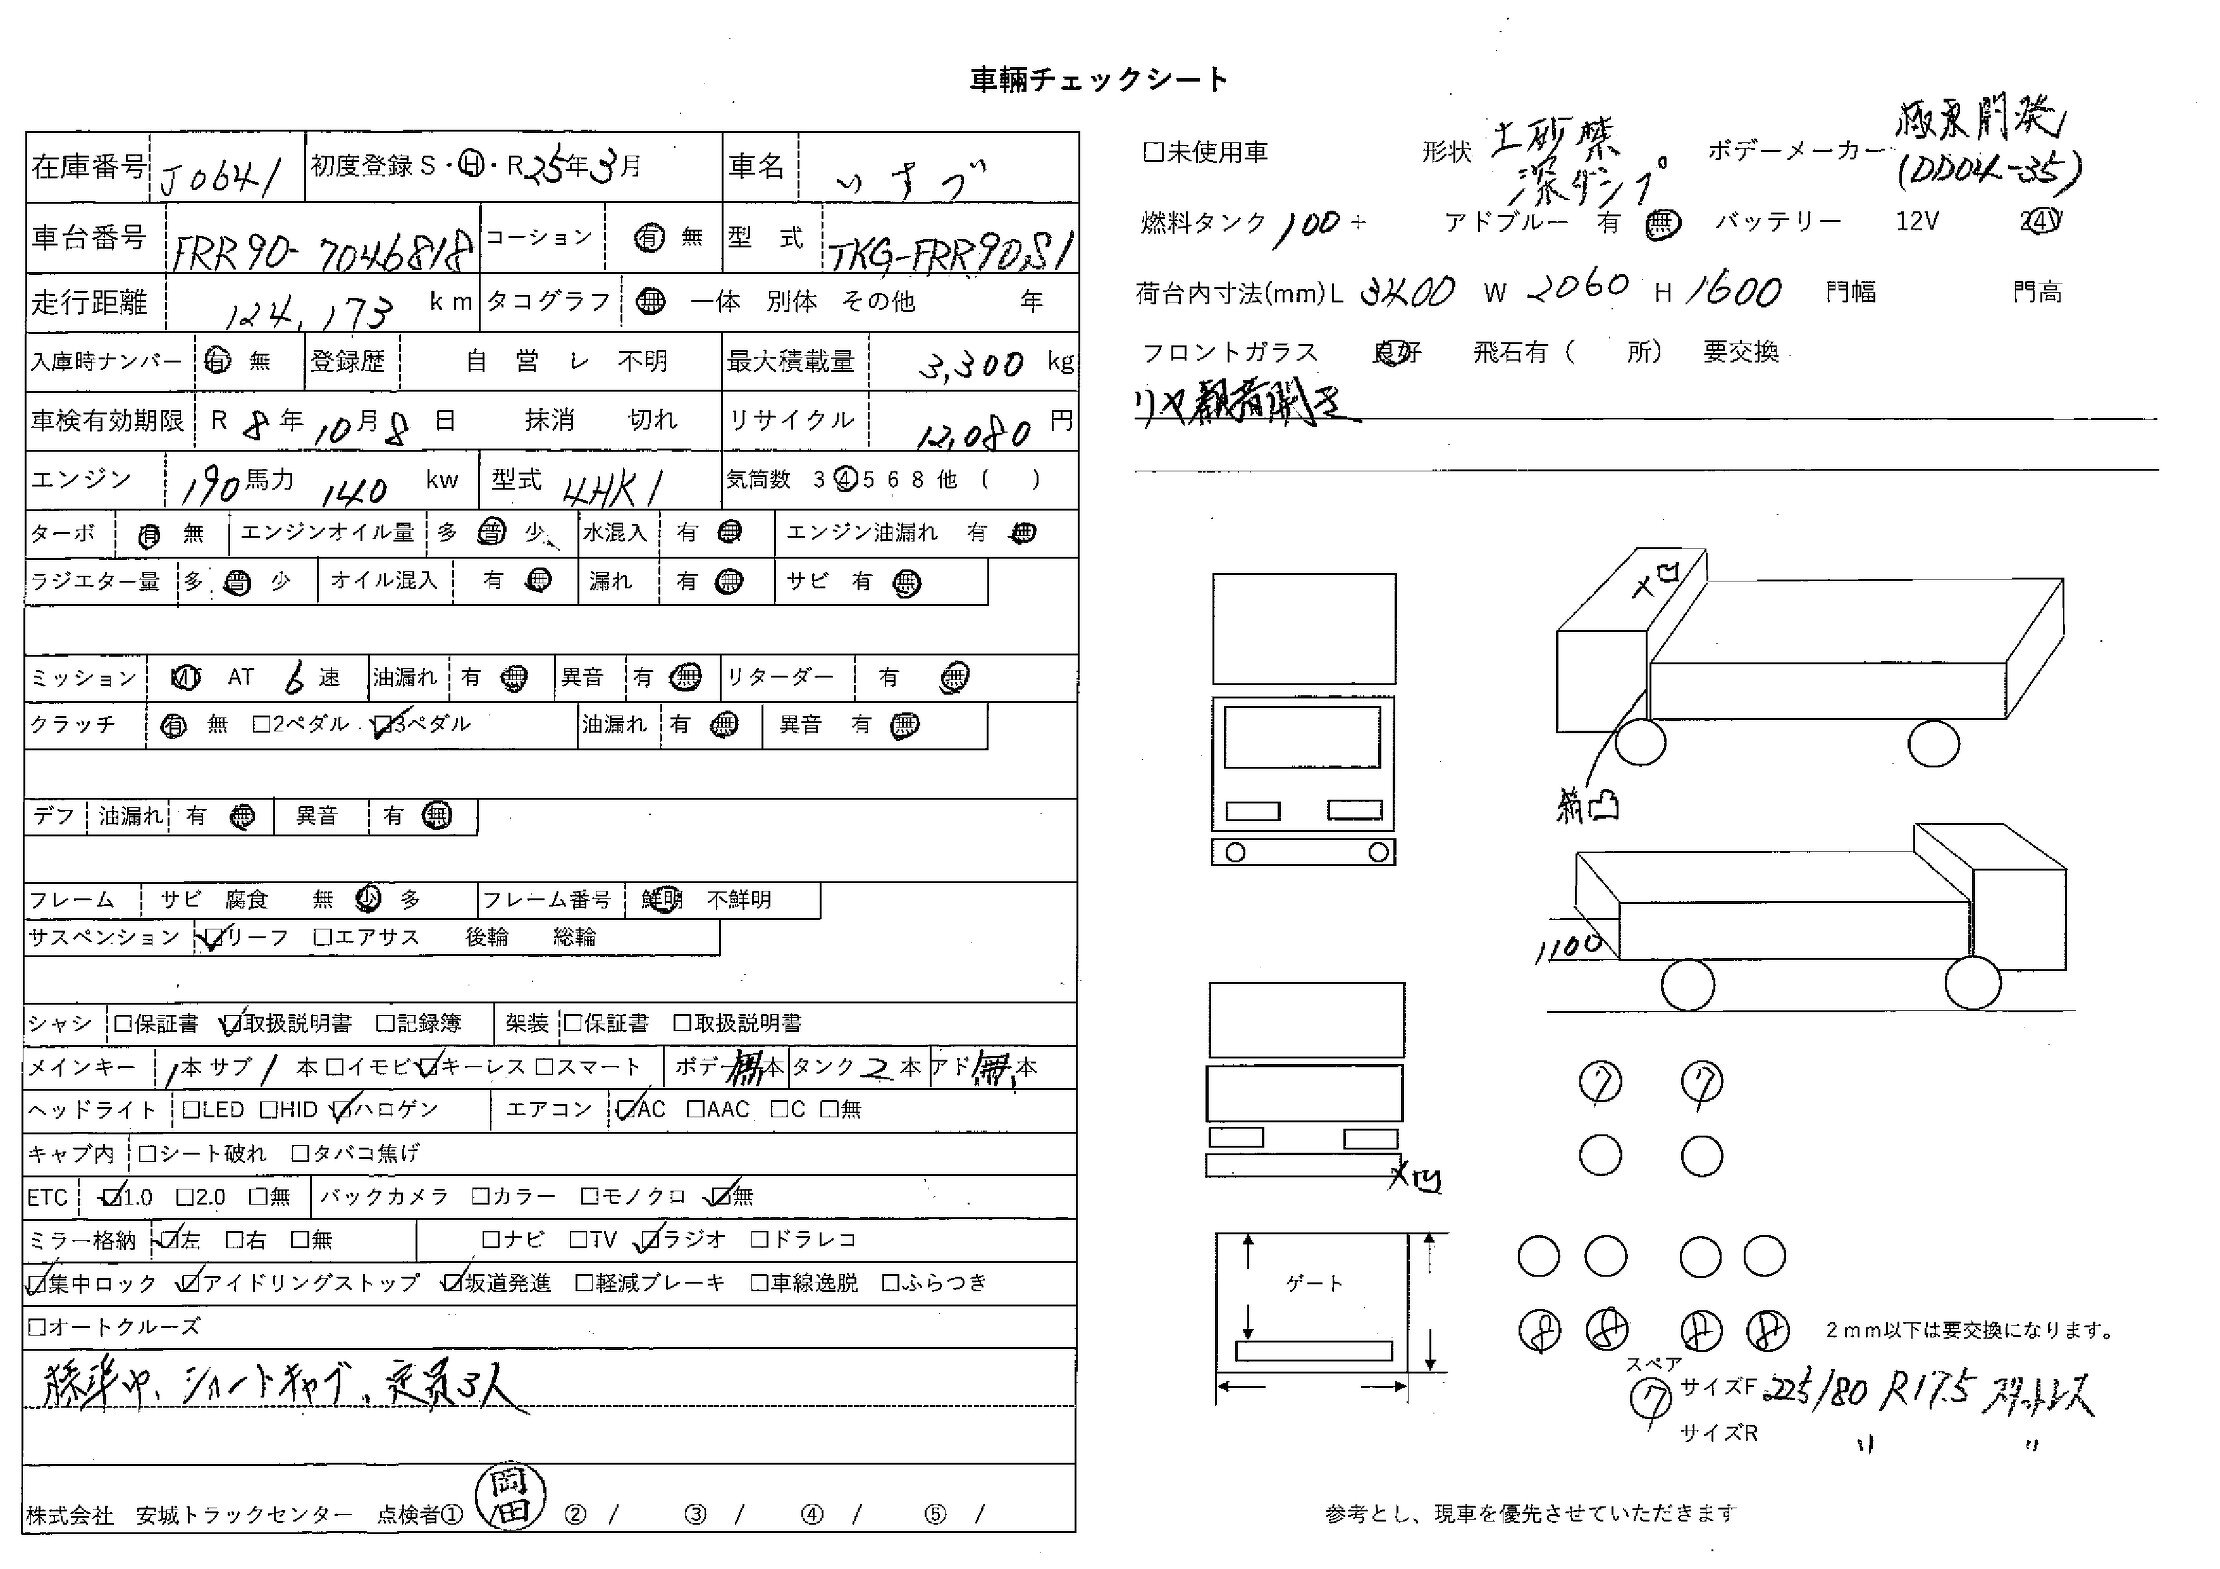 車輛チェックシート
在庫番号 J0641 初度登録 S・H・R25年3月 車名 いすゞ
車台番号 FRR90-7046818 コーション 有 無 型 式 TKG-FRR90S1
走行距離 124,173 km タコグラフ 無 一体 別体 その他 年
入庫時ナンバー 有 無 登録歴 自 営 レ 不明 最大積載量 3,300 kg
車検有効期限 R 8年10月8日 抹消 切れ リサイクル 12,080 円
エンジン 190馬力 140 kw 型式 4HK1 気筒数 3 4 5 6 8 他 ( )
ターボ 有 無 エンジンオイル量 多 普 少 水混入 有 無 エンジン油漏れ 有 無
ラジエター量 多 普 少 オイル混入 有 無 漏れ 有 無 サビ 有 無
ミッション MT AT 6速 油漏れ 有 無 異音 有 無 リターダー 有 無
クラッチ 有 無 □2ペダル ☑3ペダル 油漏れ 有 無 異音 有 無
デフ 油漏れ 有 無 異音 有 無
フレーム サビ 腐食 無 少 多 フレーム番号 鮮明 不鮮明
サスペンション ☑リーフ □エアサス 後輪 総輪
シャシ □保証書 ☑取扱説明書 □記録簿 架装 □保証書 □取扱説明書
メインキー 1本 サブ 1本 □イモビ ☑キーレス □スマート ボデー無本 タンク2本 アド無本
ヘッドライト □LED □HID ☑ハロゲン エアコン ☑AC □AAC □C □無
キャブ内 □シート破れ □タバコ焦げ
ETC ☑1.0 □2.0 □無 バックカメラ □カラー □モノクロ ☑無
ミラー格納 ☑左 □右 □無 □ナビ □TV ☑ラジオ □ドラレコ
☑集中ロック ☑アイドリングストップ ☑坂道発進 □軽減ブレーキ □車線逸脱 □ふらつき
□オートクルーズ
標準巾、ショートキャブ、定員3人
株式会社 安城トラックセンター 点検者① 岡田 ② / ③ / ④ / ⑤ /
□未使用車 形状 土砂禁 深ダンプ ボデーメーカー 極東開発 (DD04-35)
燃料タンク 100 アドブルー 有 無 バッテリー 12V 24V
荷台内寸法(mm) L 3400 W 2060 H 1600 門幅 門高
フロントガラス 良好 飛石有 ( 所) 要交換
リヤ観音開き
×凸
凸
1100
×
7 7
ゲート
8 8 8 8 2mm以下は要交換になります。
スペア
7 サイズF 225/80 R17.5 スタットレス
サイズR 〃 〃
参考とし、現車を優先させていただきます